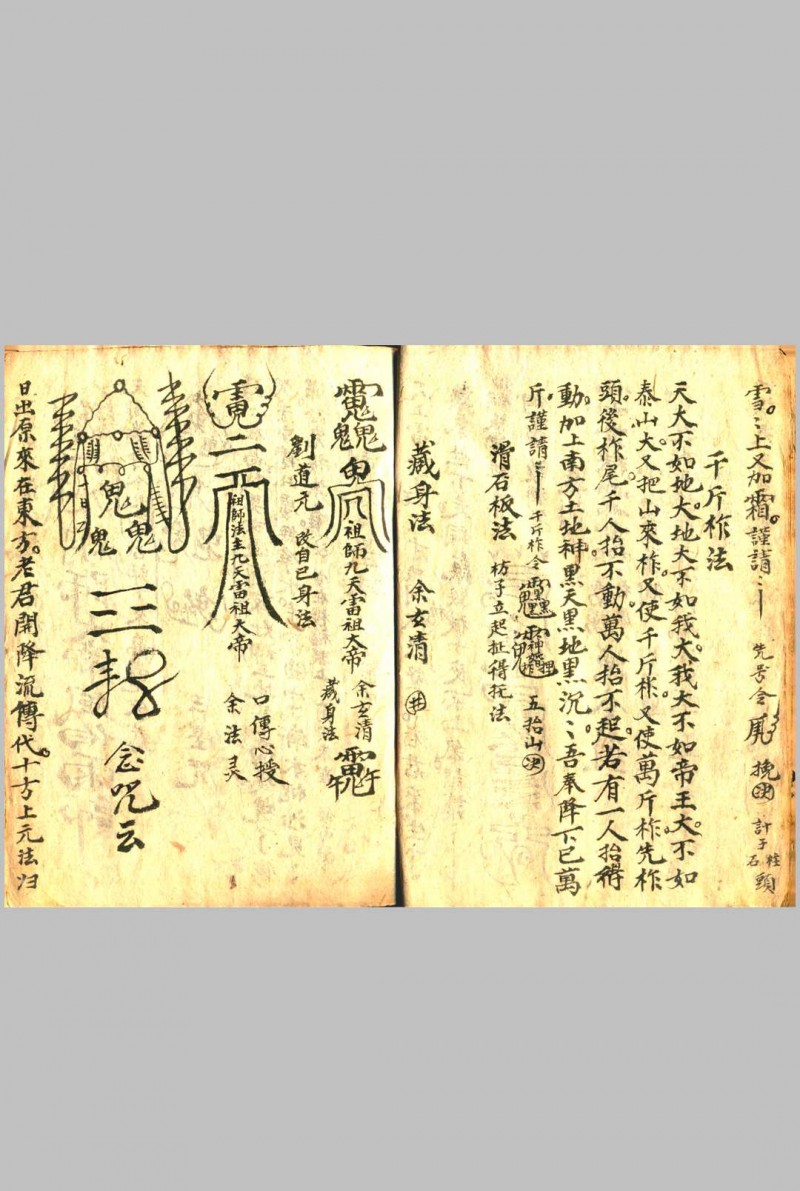 雪。〻上又加霜。謹請〻 先差令 挽 計子石柱頭
千斤柞法
天大不如地大。地大不如我大。我大不如帝王大。不如
泰山大。又把山來柞。又使千斤柞。又使萬斤柞。先柞
頭。後柞尾。千人抬不動。萬人抬不起。若有一人抬得
動。加上南方土地神。黑天黑地黑沉〻。吾奉降下已萬
斤。謹請〻 千斤柞令 五抬山
滑石板法 枋子立起扯得托法
藏身法 余玄清 井
祖師九天雷祖大帝 余玄清藏身法
劉道元 改自已身法
祖師法主九天雷祖大帝
口傳心授
余法灵
鬼 鬼 鬼
念咒云
日出原來在東方。老君開降流傳代。十方上元法归